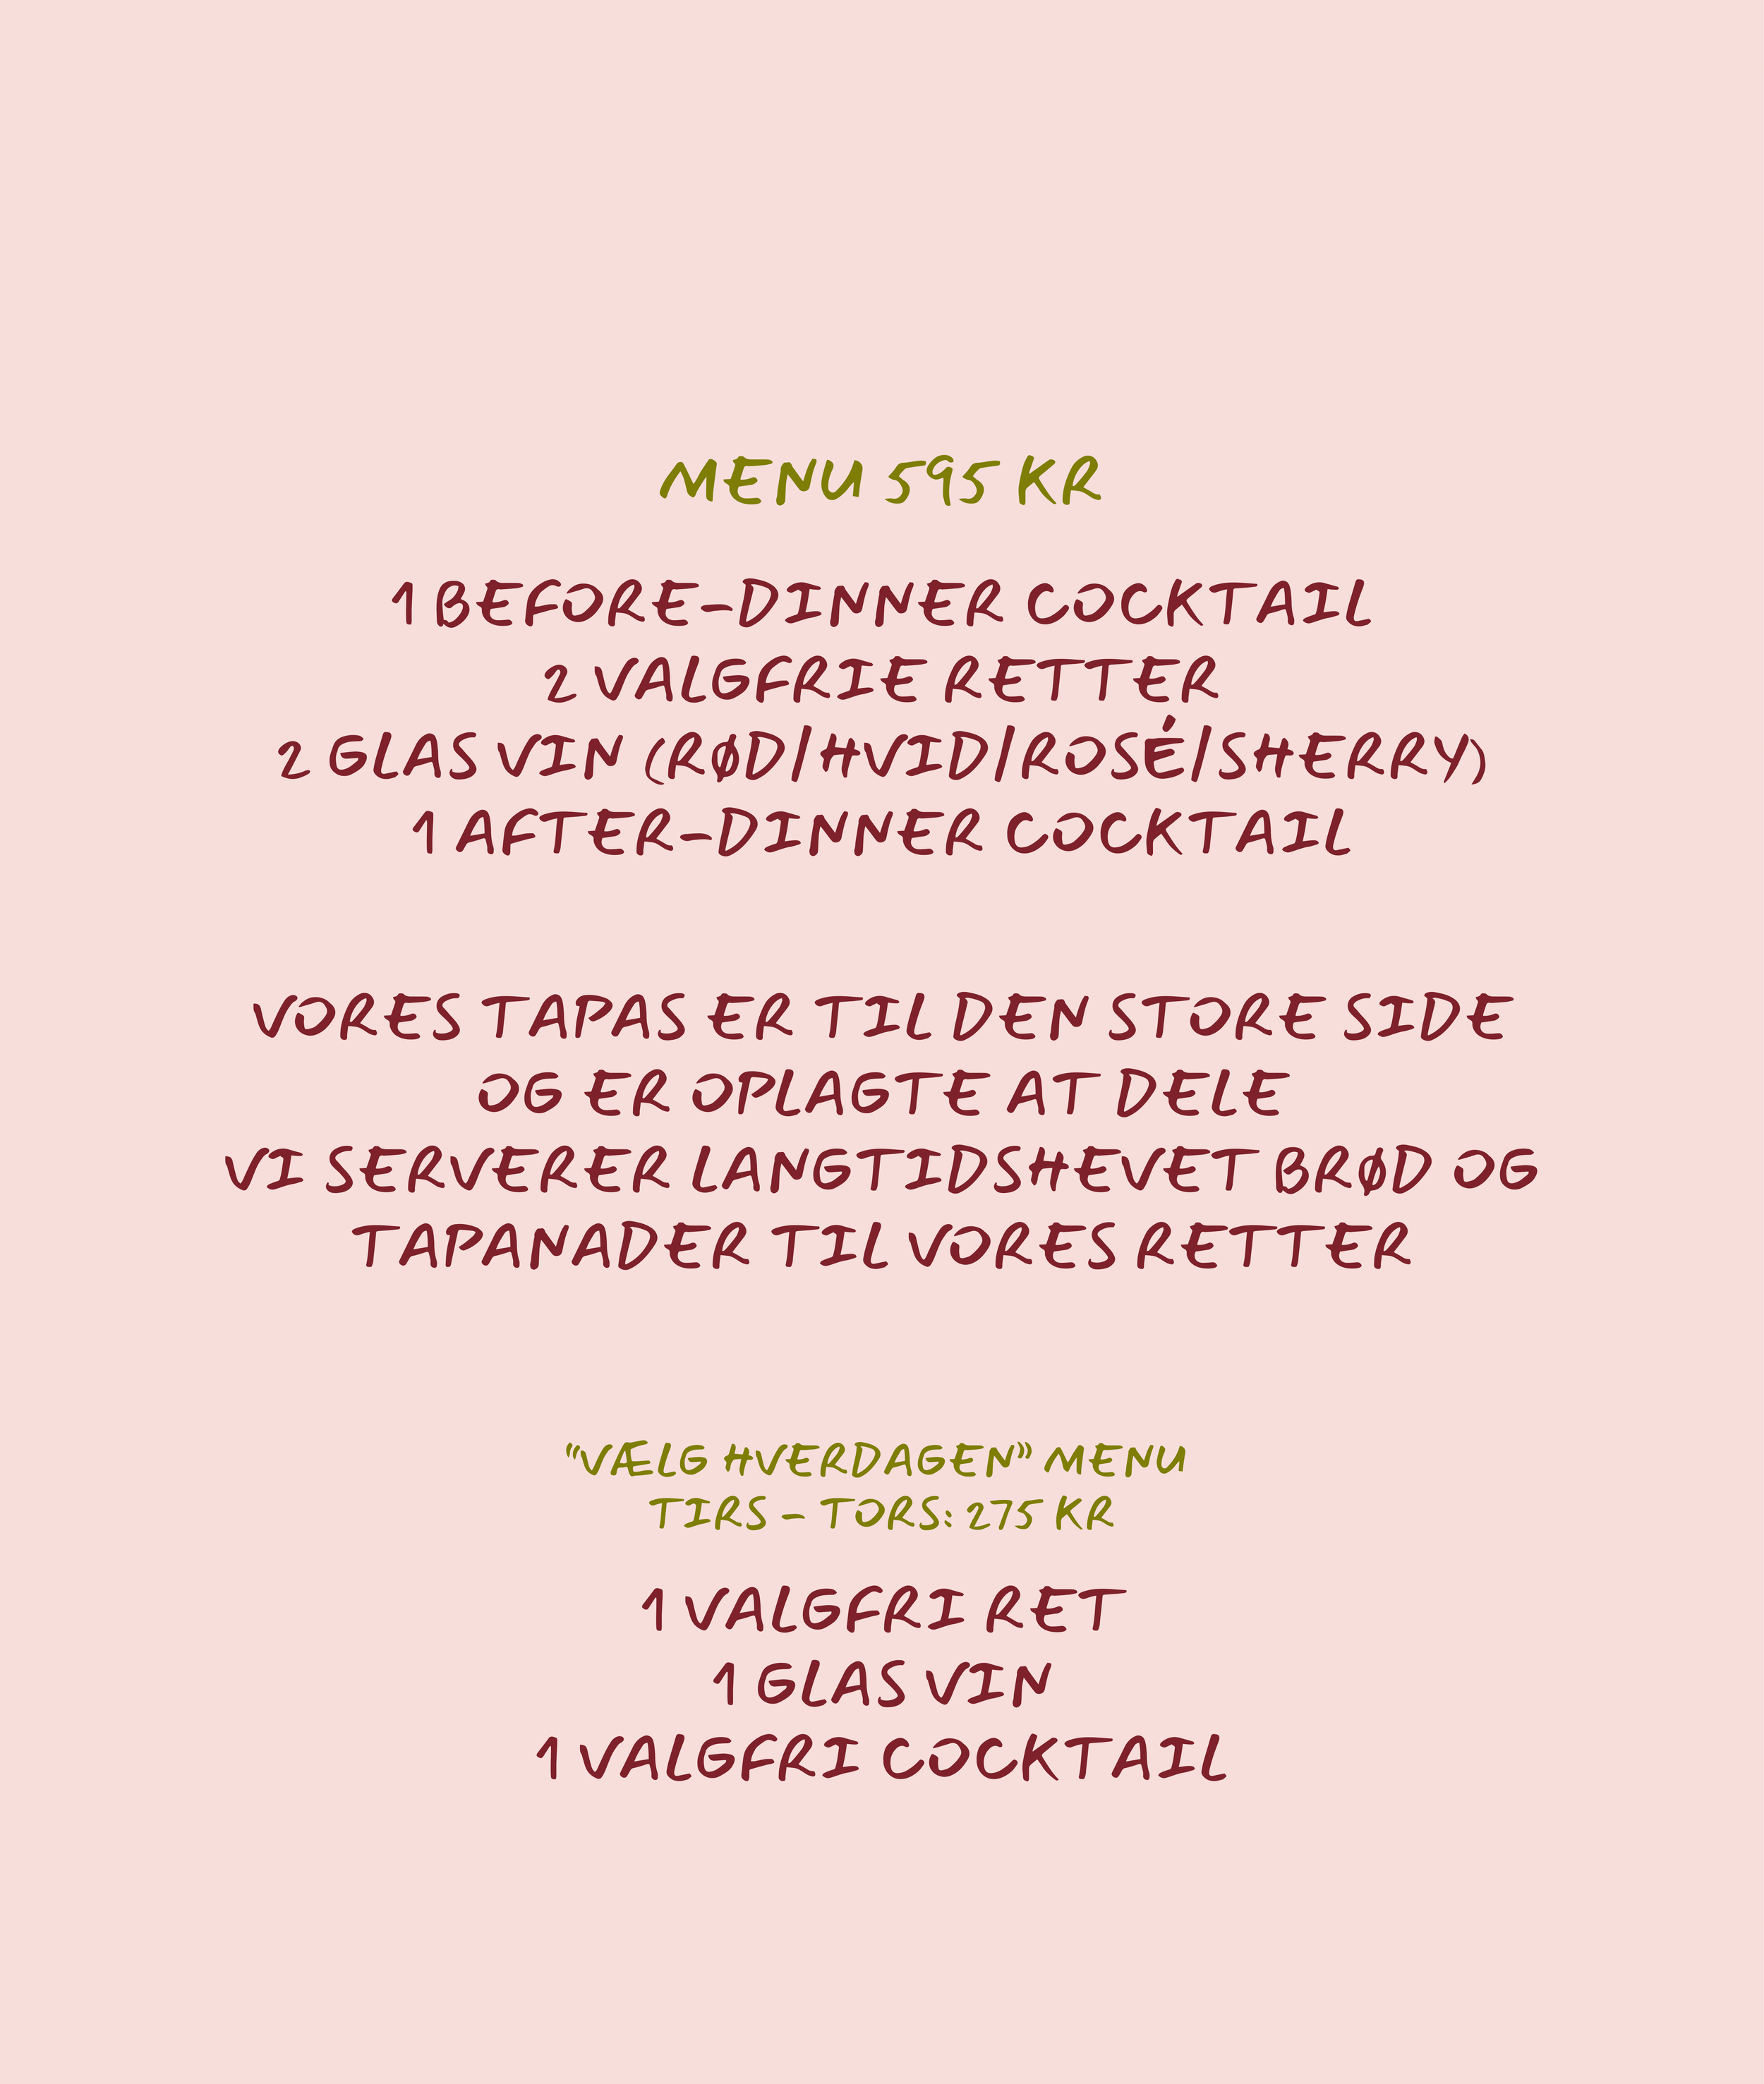 MENU 595 KR
1 BEFORE-DINNER COCKTAIL
2 VALGFRIE RETTER
2 GLAS VIN (RØD/HVID/ROSÉ/SHERRY)
1 AFTER-DINNER COCKTAIL
VORES TAPAS ER TIL DEN STORE SIDE
OG ER OPLAGTE AT DELE
VI SERVERER LANGTIDSHEVET BRØD OG
TAPANADER TIL VORES RETTER
"VÆLG HVERDAGEN" MENU
TIRS - TORS: 275 KR
1 VALGFRI RET
1 GLAS VIN
1 VALGFRI COCKTAIL